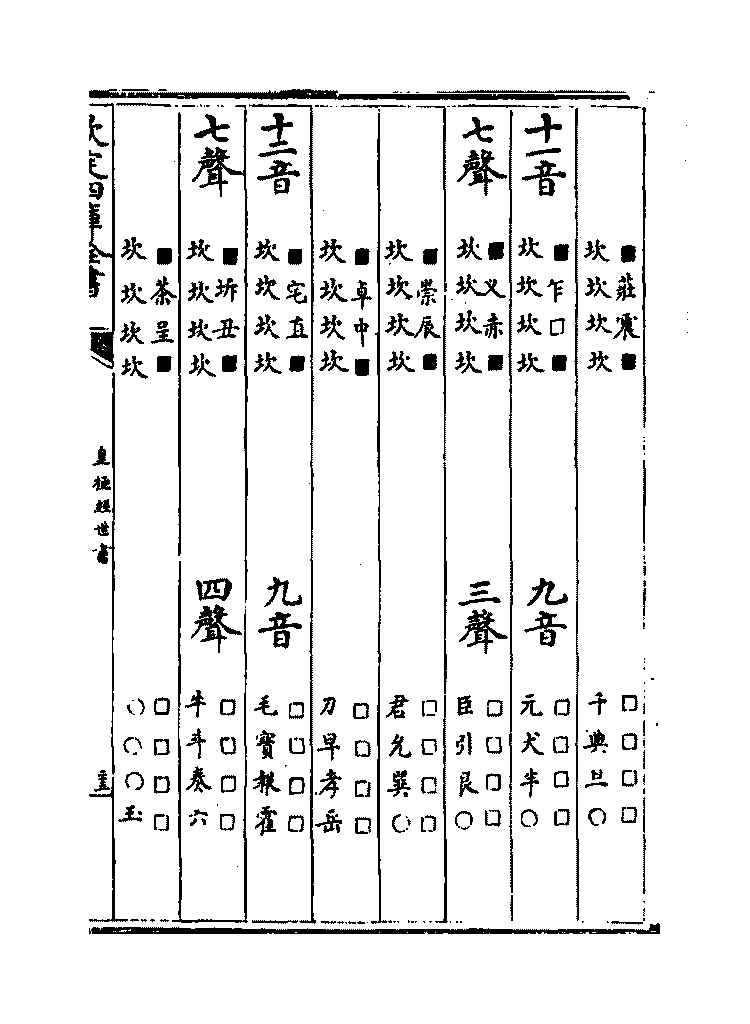 ■莊震■
坎坎坎坎
□□□□
千典旦○
十一音
■乍□■
坎坎坎坎
九音
□□□□
元犬半○
七聲
■叉赤■
坎坎坎坎
三聲
□□□□
臣引艮○
■崇辰■
坎坎坎坎
□□□□
君允巽○
■卓中■
坎坎坎坎
□□□□
刀早孝岳
十二音
■宅直■
坎坎坎坎
九音
□□□□
毛寶報霍
七聲
■坼丑■
坎坎坎坎
四聲
□□□□
牛斗奏六
■茶呈■
坎坎坎坎
□□□□
○○○玉
欽定四庫全書
皇極經世書